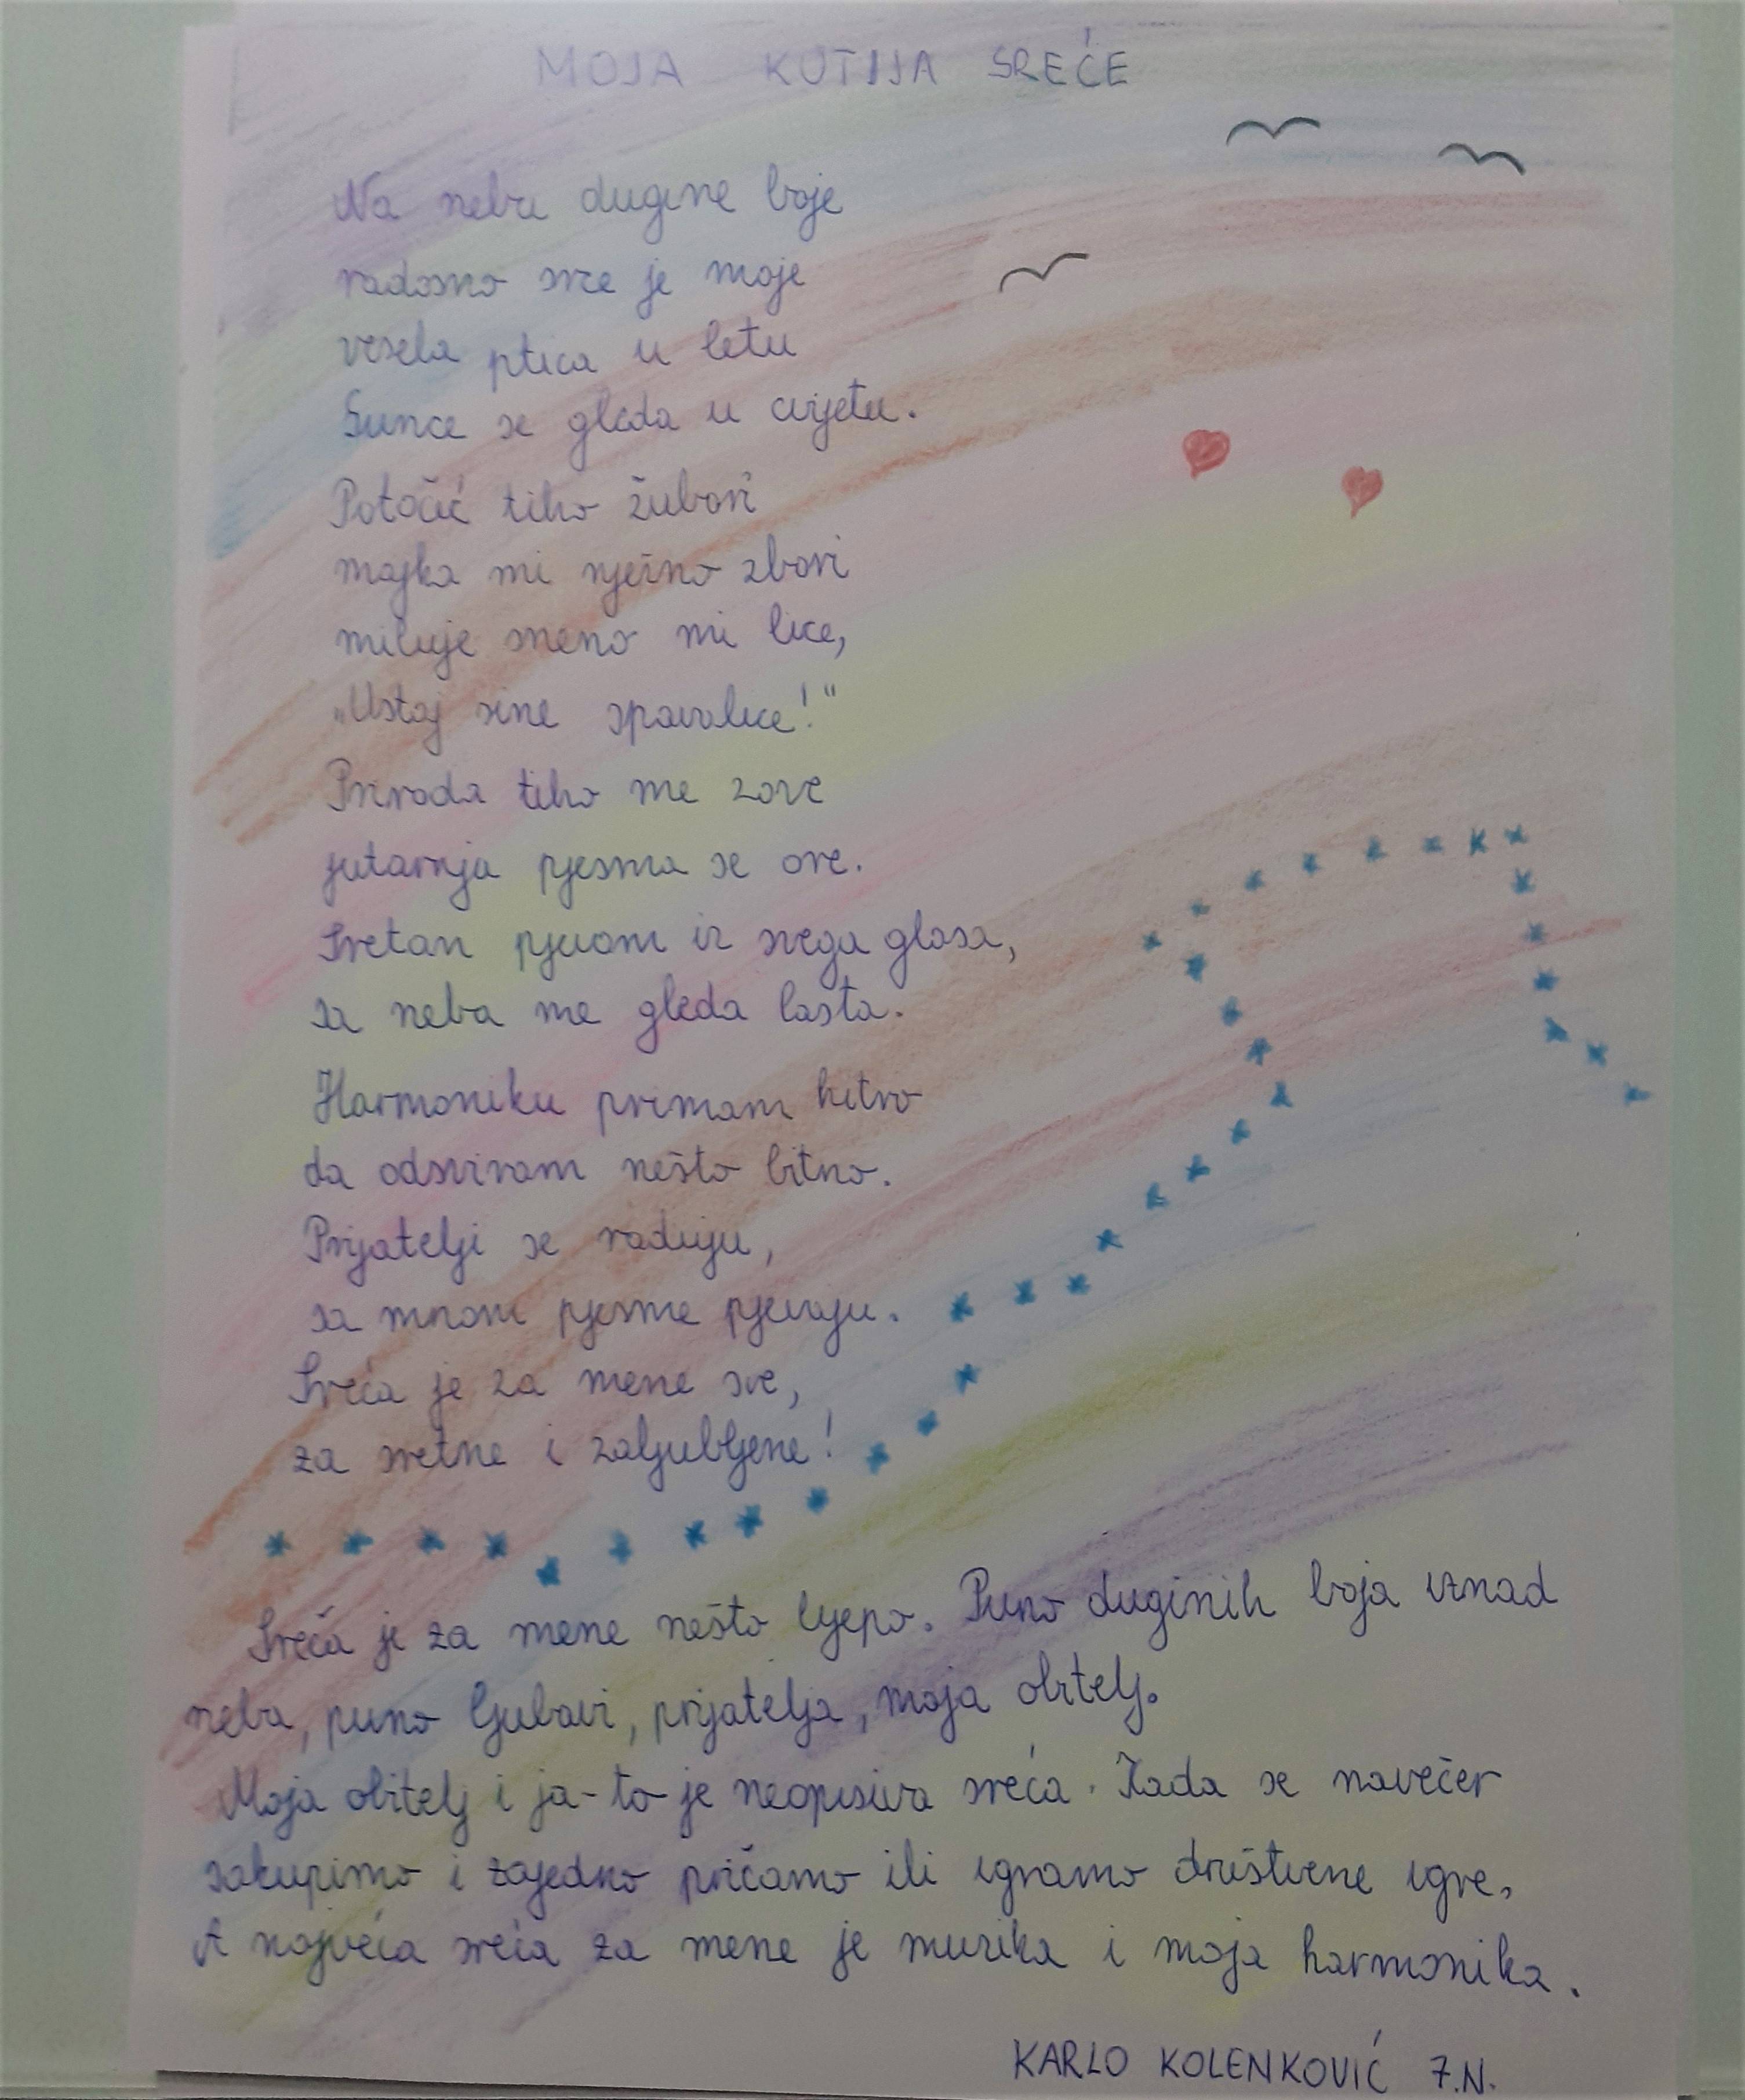 MOJA KUTIJA SREĆE
Na nebu dugine boje
radosno srce je moje
vesela ptica u letu
Sunce se gleda u cvijetu.
Potočić tiho žubori
majka mi nježno zbori
miluje sneno mi lice,
„Ustaj sine spavalice!“
Priroda tiho me zove
jutarnja pjesma se ore.
Sretan pjevam iz svega glasa,
sa neba me gleda lasta.
Harmoniku primam hitro
da odsviram nešto bitno.
Prijatelji se raduju,
sa mnom pjesme pjevaju.
Sreća je za mene sve,
za sretne i zaljubljene!
Sreća je za mene nešto lijepo. Puno duginih boja iznad
neba, puno ljubavi, prijatelja, moja obitelj.
Moja obitelj i ja-to je neopisiva sreća. Kada se navečer
sakupimo i zajedno pričamo ili igramo društvene igre.
A najveća sreća za mene je muzika i moja harmonika.
KARLO KOLENKOVIĆ 7.N.